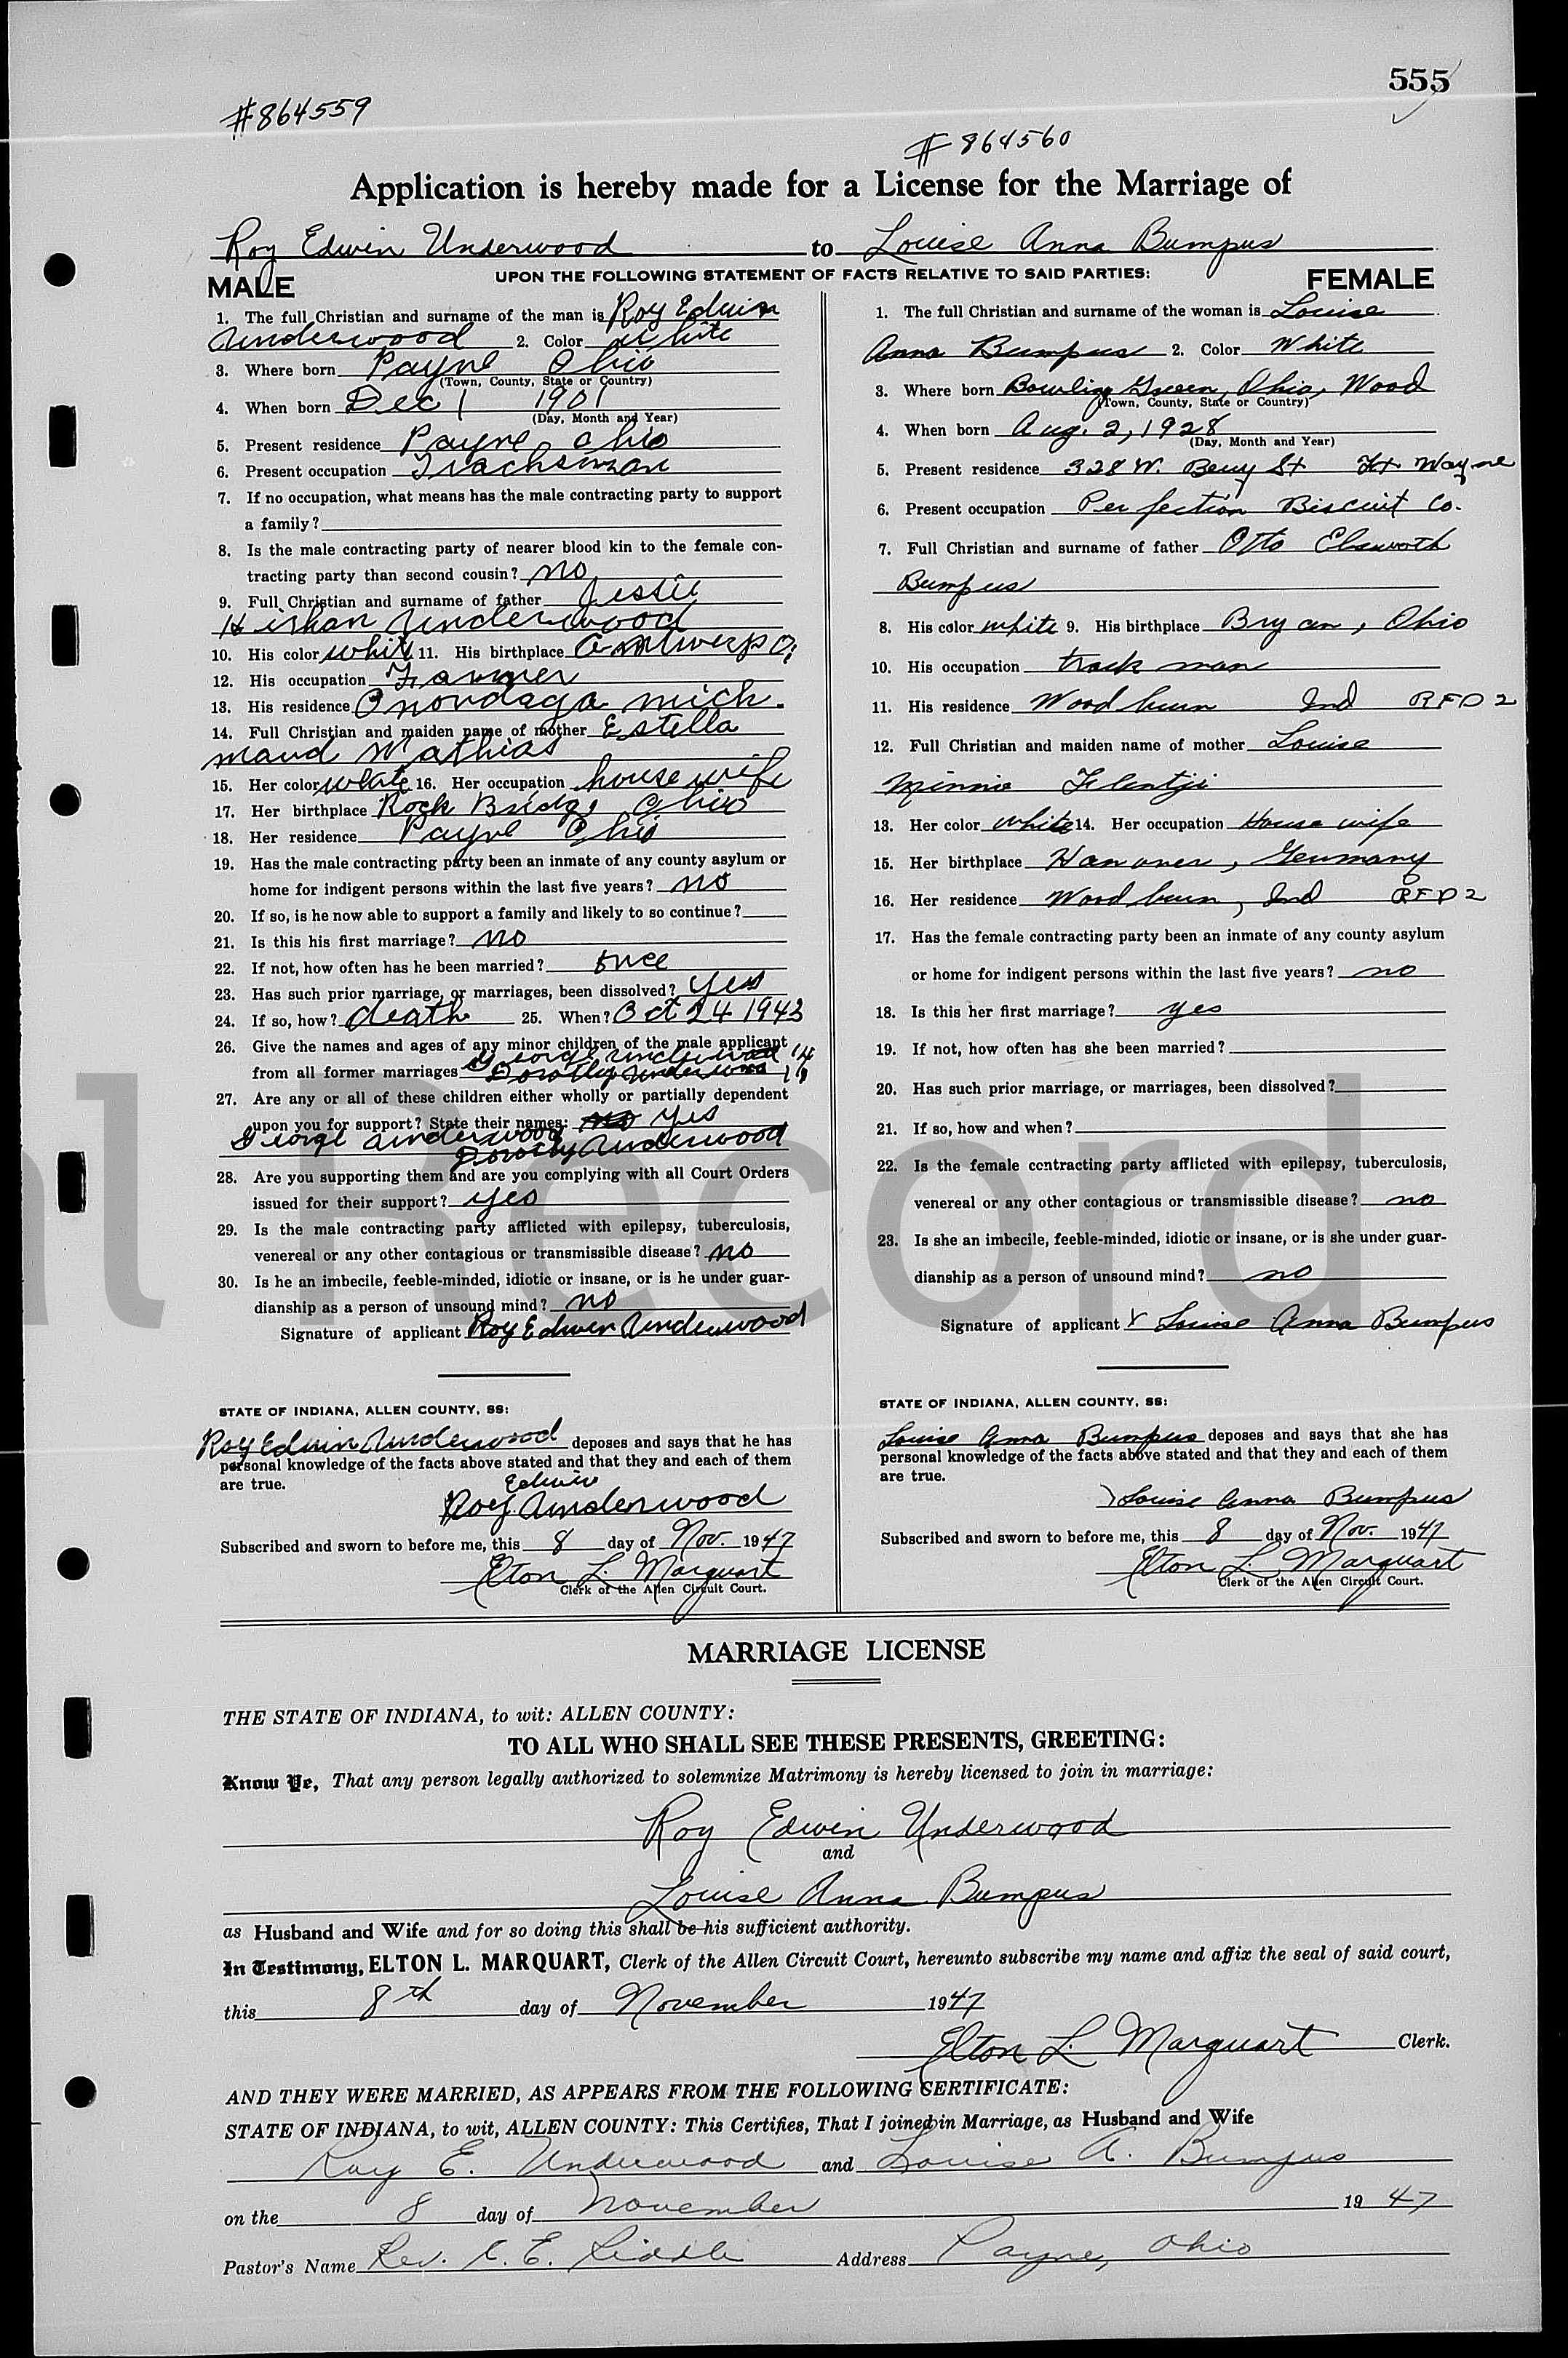 555
#864559
#864560
Application is hereby made for a License for the Marriage of
Roy Edwin Underwood to Louise Anna Bumpus
UPON THE FOLLOWING STATEMENT OF FACTS RELATIVE TO SAID PARTIES:
MALE
1. The full Christian and surname of the man is Roy Edwin
Underwood 2. Color white
3. Where born Payne Ohio
(Town, County, State or Country)
4. When born Dec 1 1901
(Day, Month and Year)
5. Present residence Payne, Ohio
6. Present occupation
7. If no occupation, what means has the male contracting party to support
a family?
8. Is the male contracting party of nearer blood kin to the female con-
tracting party than second cousin? no
9. Full Christian and surname of father Jessie
Underwood
10. His color white 11. His birthplace Antwerp O;
12. His occupation Farmer
13. His residence Onondaga mich.
14. Full Christian and maiden name of mother Estella
maud Mathias
15. Her color white 16. Her occupation house wife
17. Her birthplace Rock Bridge Ohio
18. Her residence Payne Ohio
19. Has the male contracting party been an inmate of any county asylum or
home for indigent persons within the last five years? no
20. If so, is he now able to support a family and likely to so continue?
21. Is this his first marriage? no
22. If not, how often has he been married? once
23. Has such prior marriage, or marriages, been dissolved? yes
24. If so, how? death 25. When? Oct 24 1943
26. Give the names and ages of any minor children of the male applicant
George Underwood 14
from all former marriages Dorothy Underwood
27. Are any or all of these children either wholly or partially dependent
upon you for support? State their names: yes
George Underwood
Dorothy Underwood
28. Are you supporting them and are you complying with all Court Orders
issued for their support? yes
29. Is the male contracting party afflicted with epilepsy, tuberculosis,
venereal or any other contagious or transmissible disease? no
30. Is he an imbecile, feeble-minded, idiotic or insane, or is he under guar-
dianship as a person of unsound mind? no
Signature of applicant Roy Edwin Underwood
STATE OF INDIANA, ALLEN COUNTY, SS:
Roy Edwin Underwood deposes and says that he has
personal knowledge of the facts above stated and that they and each of them
are true.
Edwin
Roy Underwood
Subscribed and sworn to before me, this 8 day of Nov. 1947
Elton L. Marquart
Clerk of the Allen Circuit Court.
FEMALE
1. The full Christian and surname of the woman is Louise
Anna Bumpus 2. Color White
3. Where born Bowling Green, Ohio, Wood
(Town, County, State or Country)
4. When born Aug. 2, 1928
(Day, Month and Year)
5. Present residence 328 W. Berry St Ft Wayne
6. Present occupation Perfection Biscuit Co.
7. Full Christian and surname of father Otto Elsworth
Bumpus
8. His color white 9. His birthplace Bryan, Ohio
10. His occupation track man
11. His residence Woodburn Ind RFD 2
12. Full Christian and maiden name of mother Louise
Minnie Flentji
13. Her color white 14. Her occupation House wife
15. Her birthplace Hanover, Germany
16. Her residence Woodburn, Ind RFD 2
17. Has the female contracting party been an inmate of any county asylum
or home for indigent persons within the last five years? no
18. Is this her first marriage? yes
19. If not, how often has she been married?
20. Has such prior marriage, or marriages, been dissolved?
21. If so, how and when?
22. Is the female contracting party afflicted with epilepsy, tuberculosis,
venereal or any other contagious or transmissible disease? no
23. Is she an imbecile, feeble-minded, idiotic or insane, or is she under guar-
dianship as a person of unsound mind? no
Signature of applicant x Louise Anna Bumpus
STATE OF INDIANA, ALLEN COUNTY, SS:
Louise Anna Bumpus deposes and says that she has
personal knowledge of the facts above stated and that they and each of them
are true.
Louise Anna Bumpus
Subscribed and sworn to before me, this 8 day of Nov. 1947
Elton L. Marquart
Clerk of the Allen Circuit Court.
l Record
MARRIAGE LICENSE
THE STATE OF INDIANA, to wit: ALLEN COUNTY:
TO ALL WHO SHALL SEE THESE PRESENTS, GREETING:
Know Ye, That any person legally authorized to solemnize Matrimony is hereby licensed to join in marriage:
Roy Edwin Underwood
and
Louise Anna Bumpus
as Husband and Wife and for so doing this shall be his sufficient authority.
In Testimony, ELTON L. MARQUART, Clerk of the Allen Circuit Court, hereunto subscribe my name and affix the seal of said court,
this 8th day of November 1947
Elton L. Marquart Clerk.
AND THEY WERE MARRIED, AS APPEARS FROM THE FOLLOWING CERTIFICATE:
STATE OF INDIANA, to wit, ALLEN COUNTY: This Certifies, That I joined in Marriage, as Husband and Wife
Roy E. Underwood and Louise A. Bumpus
on the 8 day of November 1947
Pastor's Name Rev. E. Address Payne, Ohio